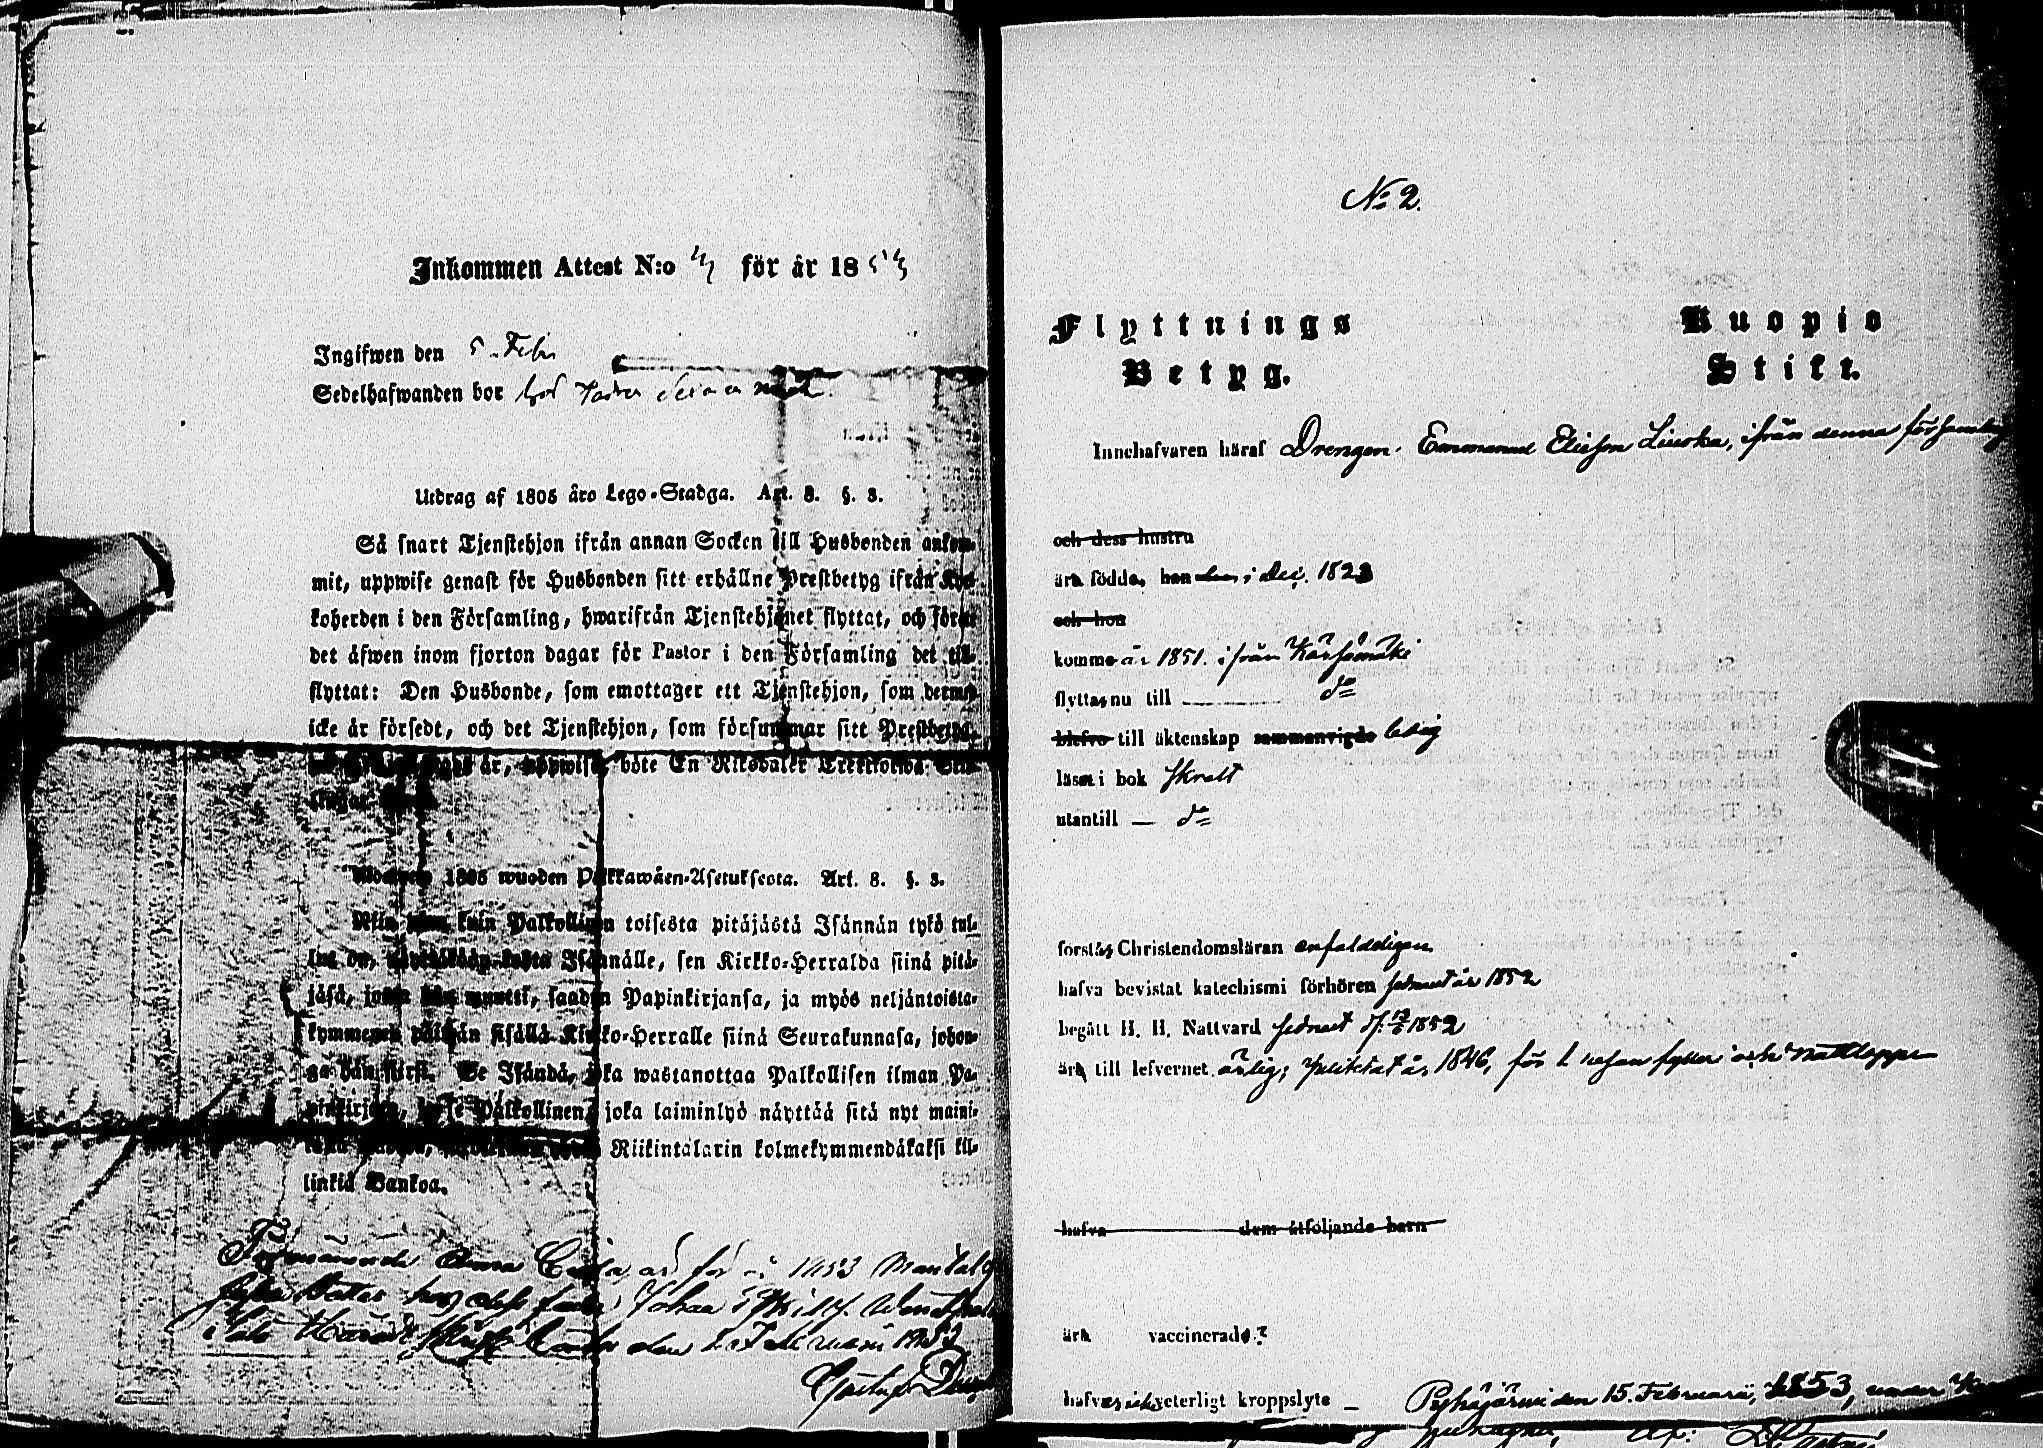 Inkommen Attest N:o för år 1853
Ingifwen den 5 Febr
Sedelhafwanden bor hos
Utdrag af 1805 års Lego-Stadga. Art. 8. §. 3.
Så snart Tjenstehjon ifrån annan Socken till Husbonden ankom-
mit, uppwise genast för Husbonden sitt erhållne Prestbetyg ifrån Kyr-
koherden i den Församling, hwarifrån Tjenstehjonet flyttat, och förete
det äfwen inom fjorton dagar för Pastor i den Församling det till-
flyttat: Den Husbonde, som emottager ett Tjenstehjon, som dermed
icke är försedt, och det Tjenstehjon, som försummar sitt Prestbetyg,
är, uppwisa, böte En Riksdaler Trettiotwå Skil-
1805 wuoden Palkkawäen-Asetuksesta. Art. 8. §. 3.
kuin Palkollinen toisesta pitäjästä Isännän tykö tul-
Isännälle, sen Kirkko-Herralda siinä pitä-
jäsä, josta hän muutti, saadun Papinkirjansa, ja myös neljäntoista-
kymmenen päiwän sisällä Kirkko-Herralle siinä Seurakunnasa, johon-
ga hän siirsi. Se Isändä, joka wastanottaa Palkollisen ilman Pa-
pinkirjata, ja se Palkollinen, joka laiminlyö näyttää sitä nyt maini-
Riikintalarin kolmekymmendäkaksi kil-
linkiä Bankoa.
Anna är för 1853 Mantals
hos dess Johan
i den Februari 1853
Gustaf
No 2.
Flyttnings Kuopio
Betyg. Stift.
Innehafvaren häraf Drengen Emmanuel Eliesson Liuska, ifrån denna församling
och dess hustru
äro födde, han i Dec. 1823
och hon
komme år 1851. ifrån Kärsämäki
flyttas nu till do
blefvo till äktenskap sammanvigde ledig
läsa i bok skralt
utantill — do
förstås Christendomsläran enfaldeligen
hafva bevistat katechismi förhören sednast år 1852
begått H. H. Nattvard sednast 1852
äro till lefvernet ärlig; pliktat år 1846, för 1 resan fylleri och
hafva dem åtföljande barn
äro vaccinerade?
hafva icke ytterligt kroppslyte — Pyhäjärwi den 15. Februarii, 1853, under